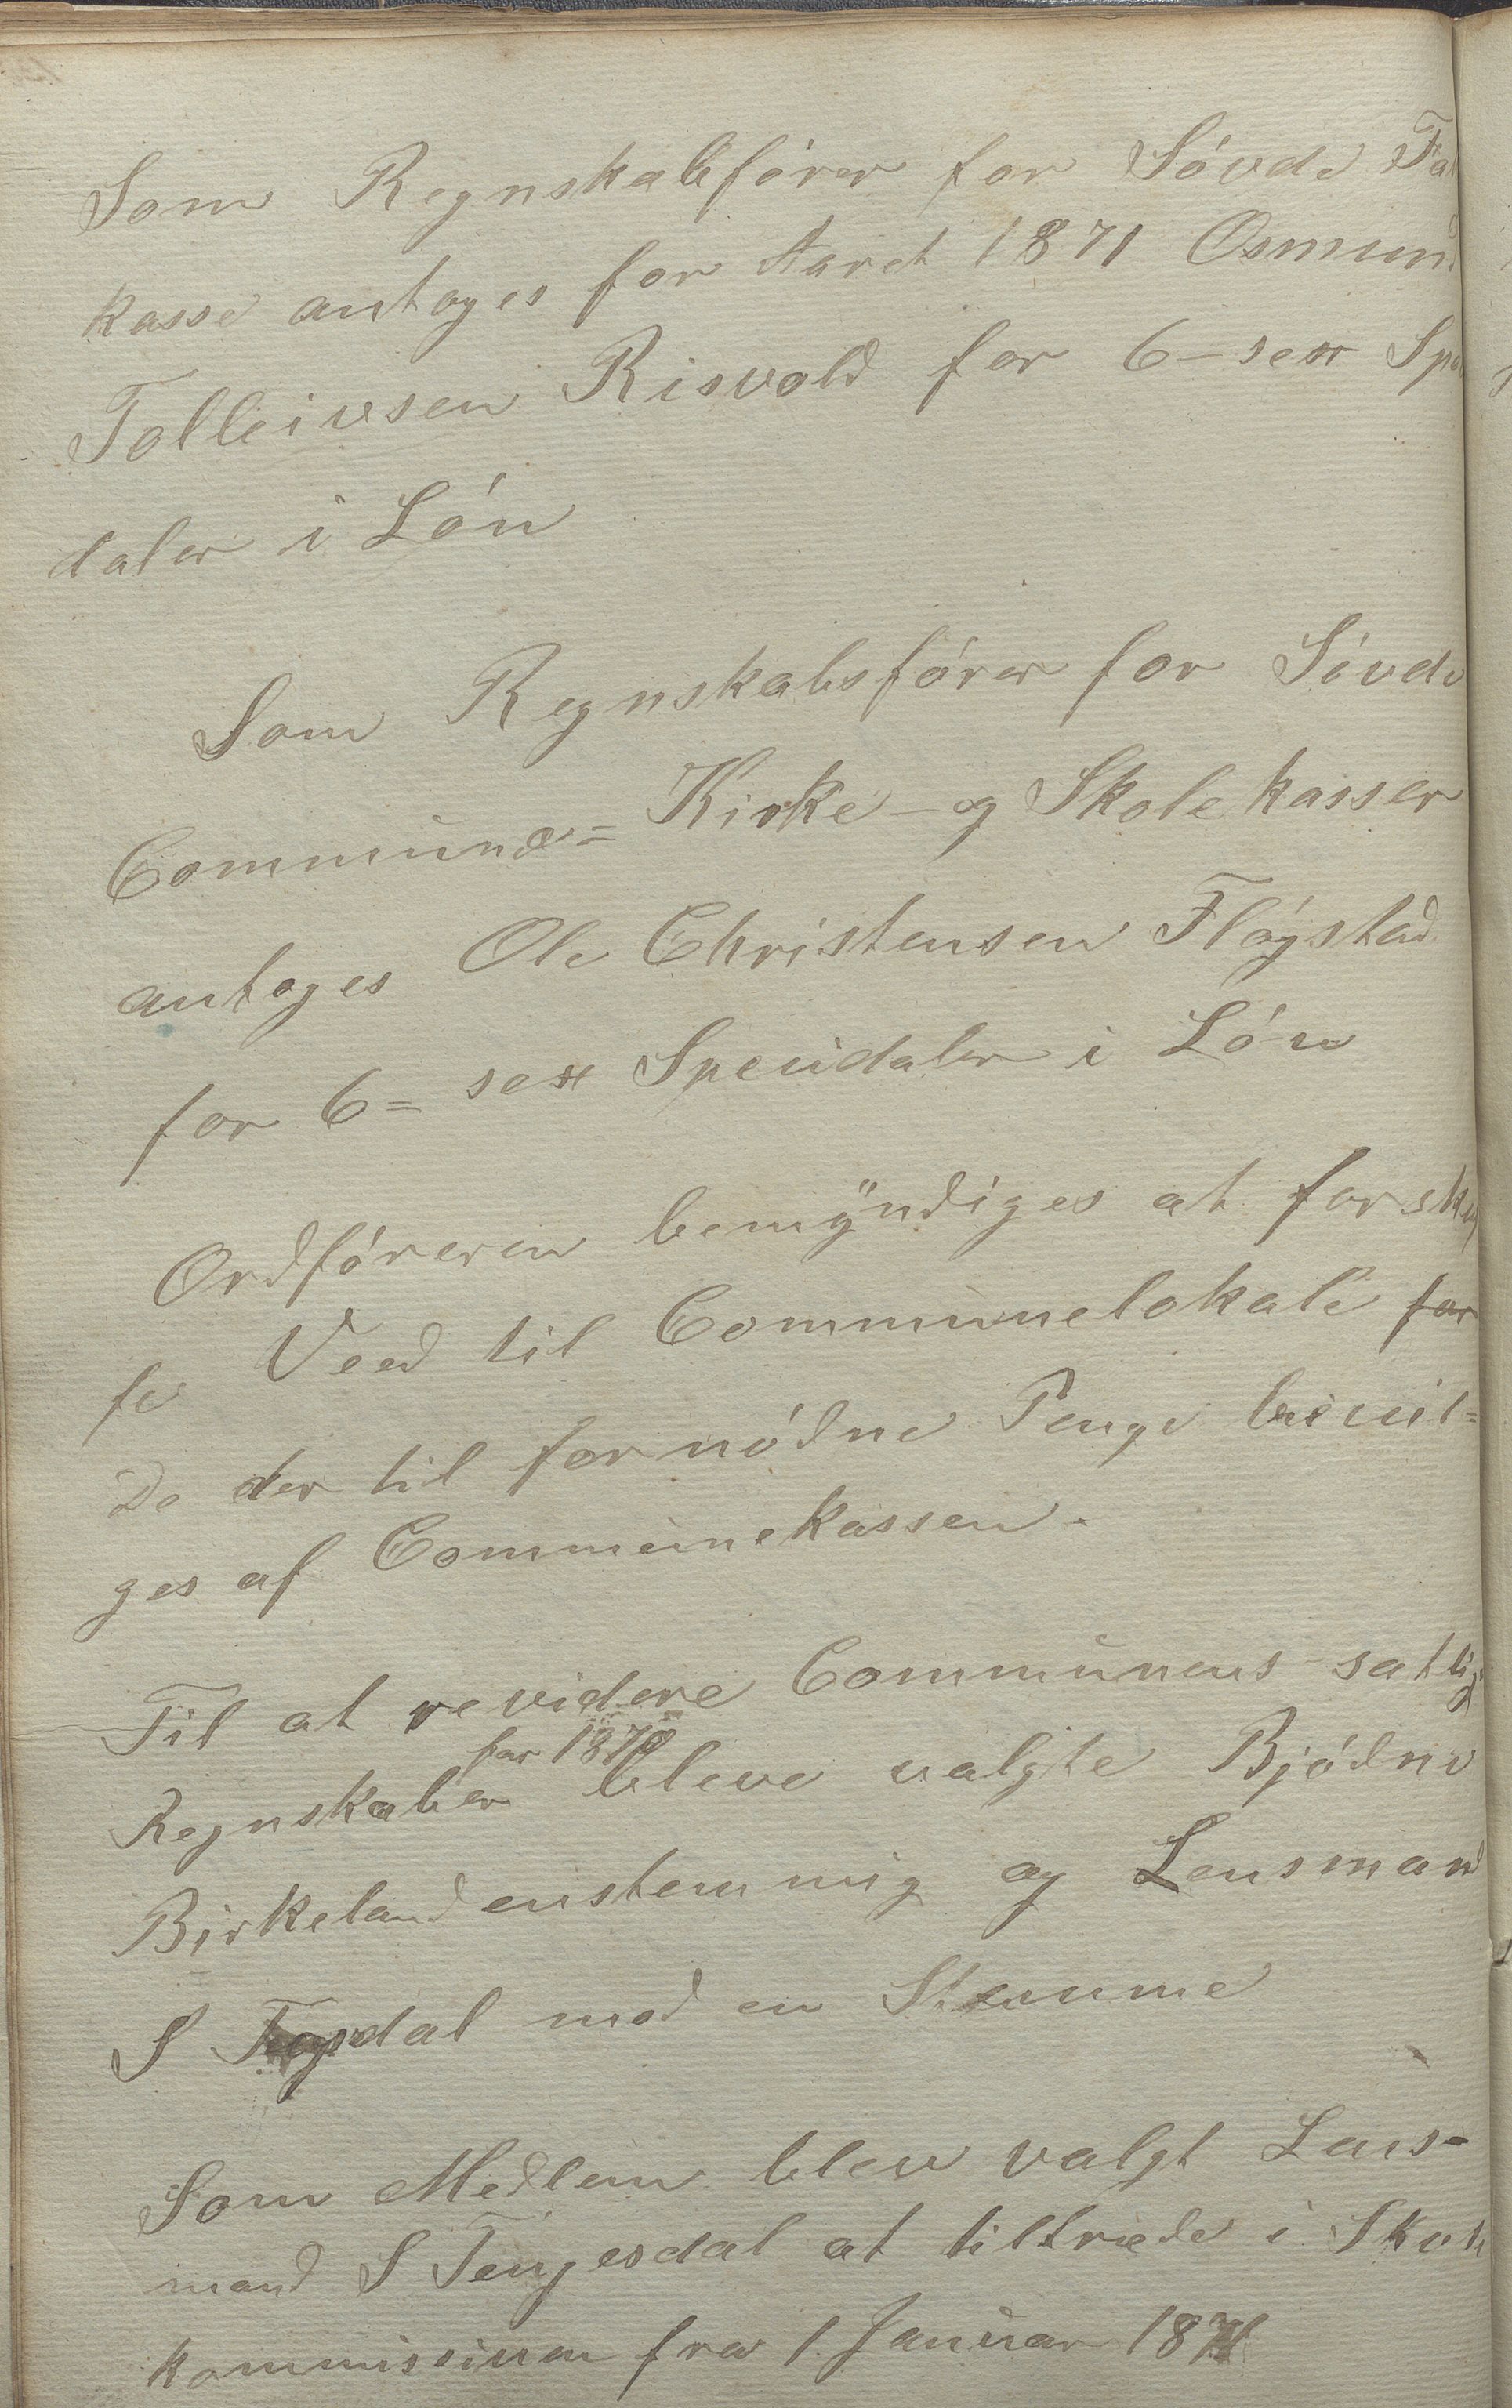 Som Regnskabfórer for Sóvde Fat
kasse antoges for Aaret 1871 Osmund
Tolleivsen Risvold for 6 - sex Spe
daler i Lón
Som Regnskabsfórer for Sóvde
Commune= Kirke - og Skolekasser
antoges Ole Christensen Flógstad
for 6 = sex Specidaler i Lón
Ordfóreren bemÿndiges at forskaf
fe Veed til Communelokale for
De der til fornódne Penge bevil=
ges af Communekassen.
Til at revidere Communens satlige
for 1870
Regnskaber bleve valgte Bjódne
Birkeland enstemmig og Lensmand
S Tegsdal med en Stemme
Som Medlem blev valgt Lens-
mand S Tengesdal at tiltræde i Skole
kommissionen fra 1. Januar 1871